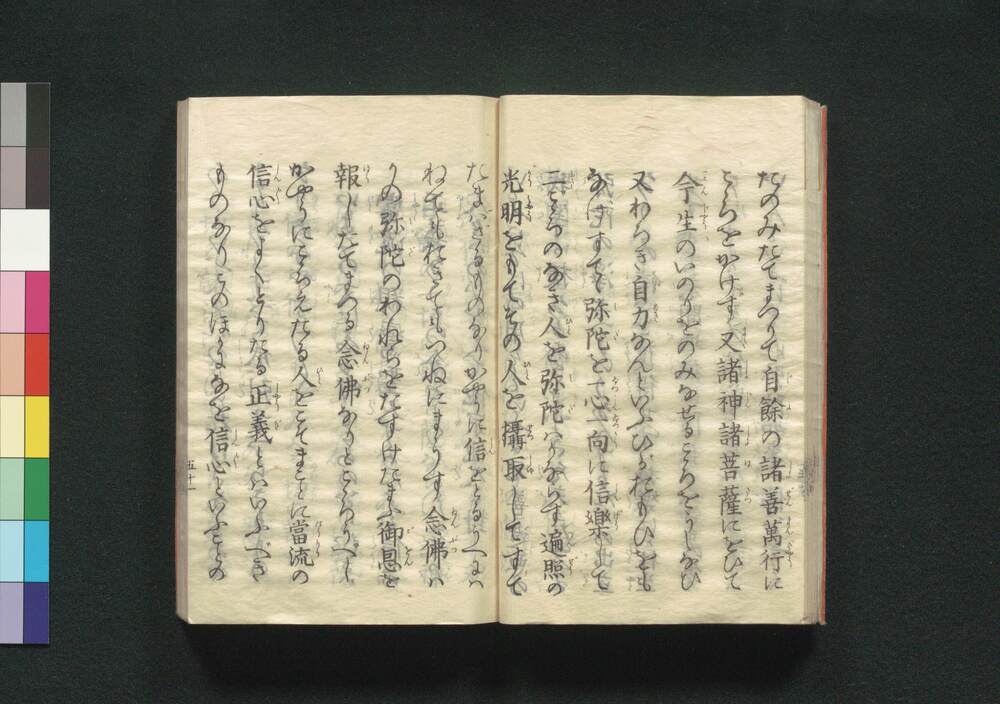 たのみたてまつりて自餘の諸善萬行に
こゝろをかけす又諸神諸菩薩にをひて
今生のいのりをのみなせるこゝろをうしなひ
又わろき自力なんといふひかおもひをも
なけすてゝ弥陀を一心一向に信樂して
ふたこゝろのなき人を弥陀はかならす遍照の
光明をもてその人を攝取してすて
たまはさるものなりかやうに信をとるうへには
ねてもおきてもつねにまうす念佛は
かの弥陀のわれらをたすけたまふ御恩を
報したてまつる念佛なりとこゝろうへし
かやうにこゝろえたる人をこそまことに當流の
信心をよくとりたる正義とはいふへき
ものなりこのほかになを信心といふことの
五十一